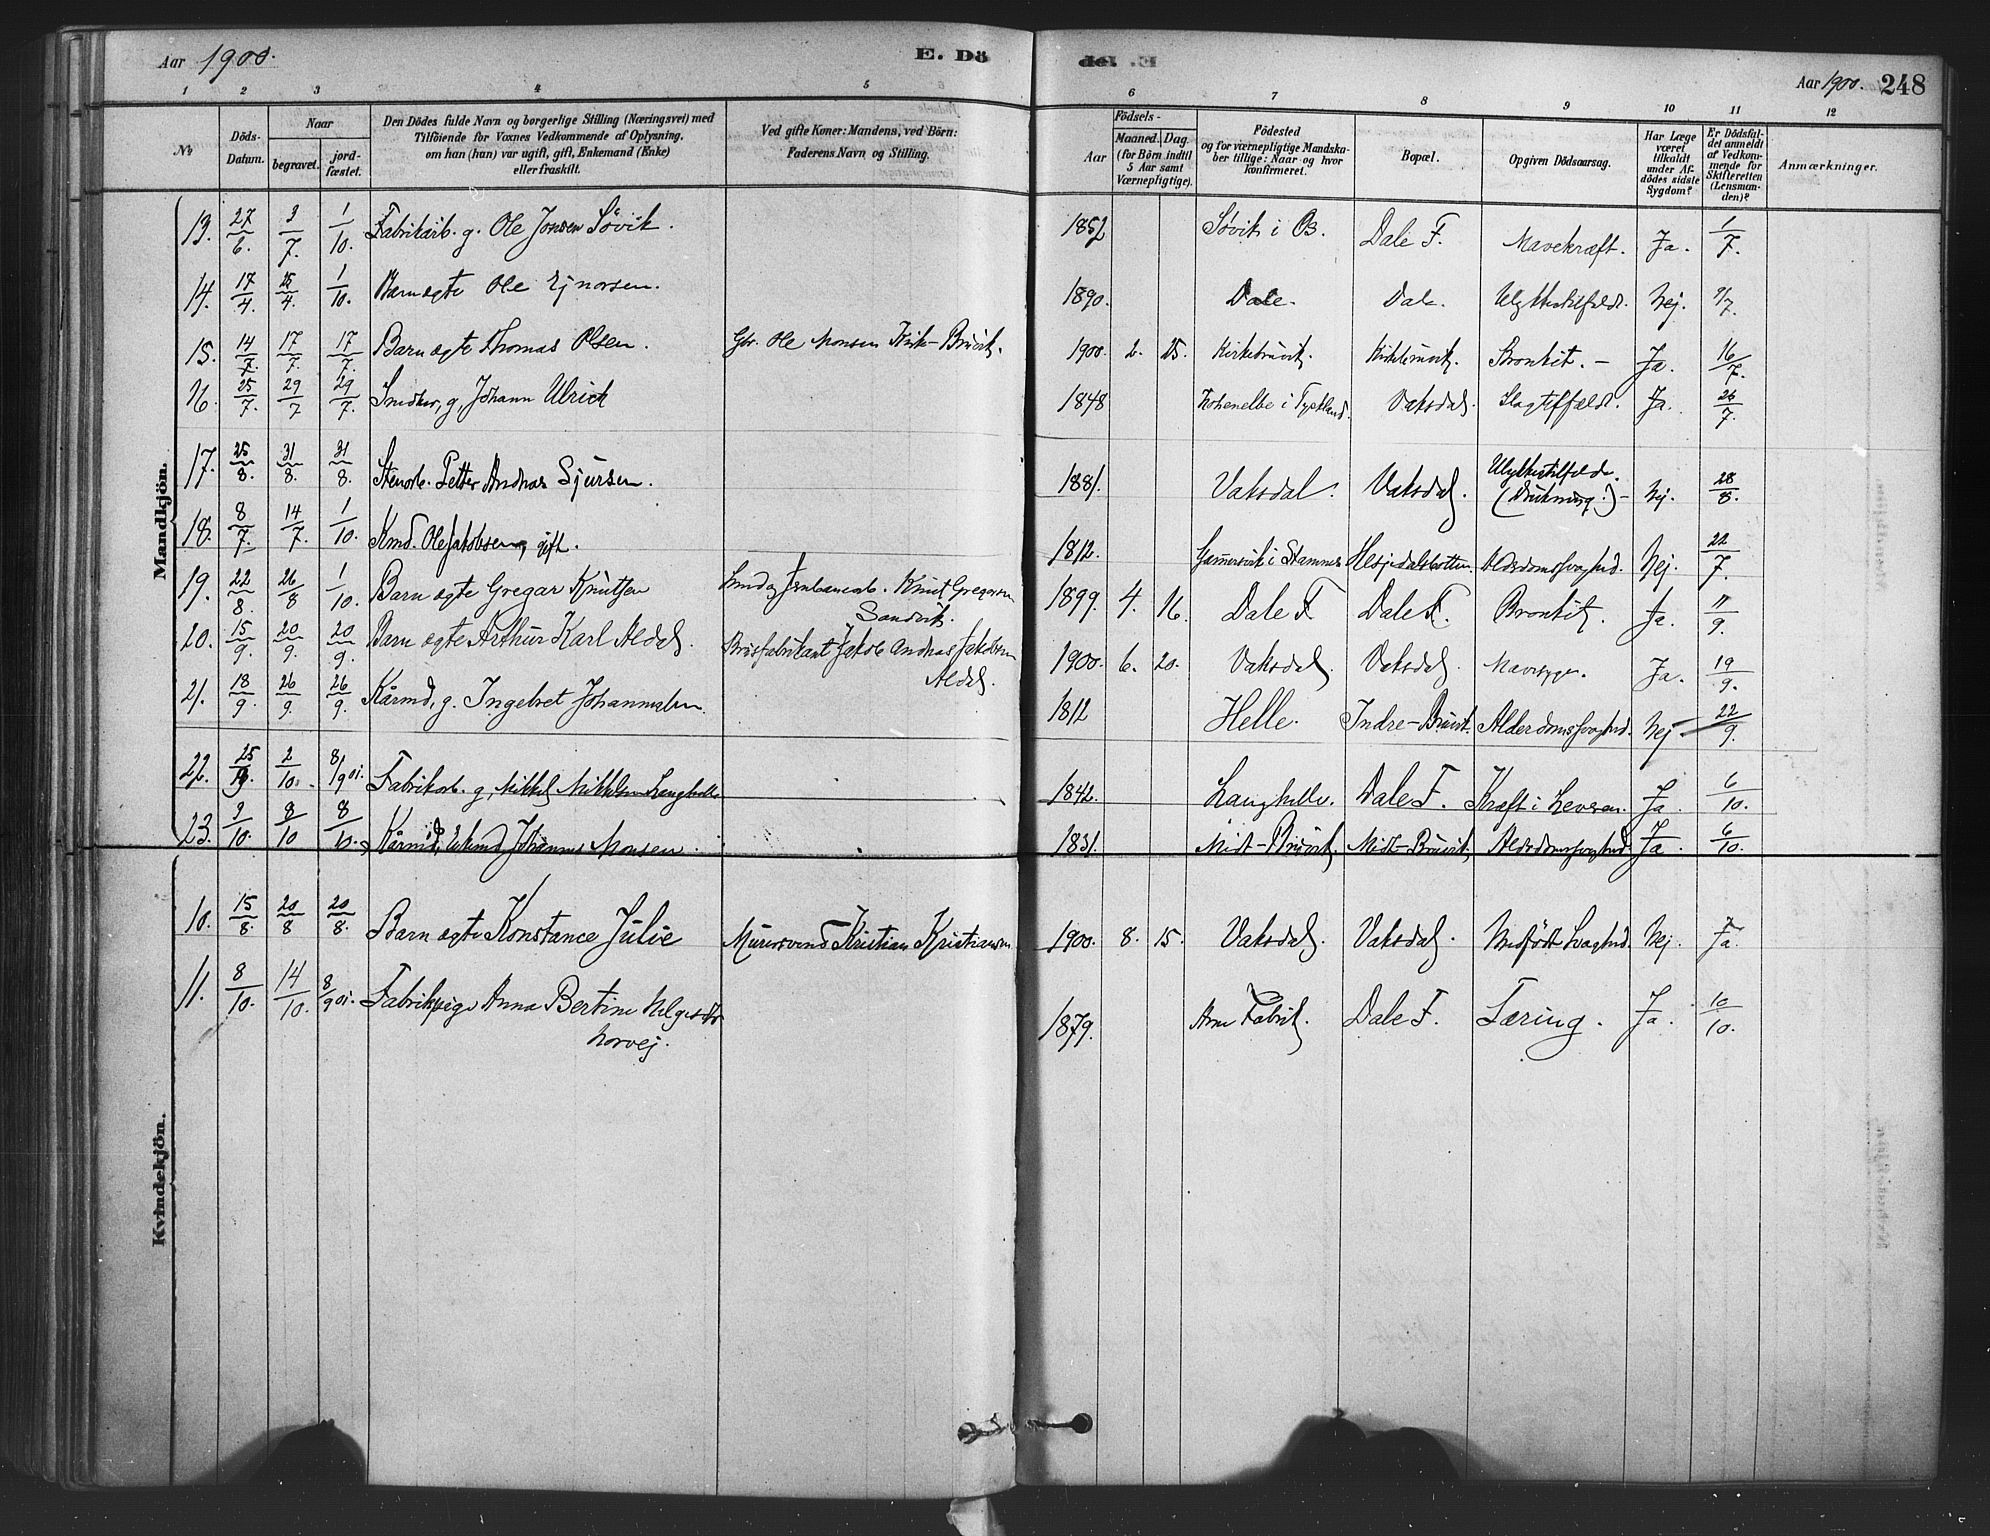 Aar 1900.
E. Dö
del. E
Aar 1900. 248
1 2 3 4 5 6 7 8 9 10 11 12
No
Döds-Datum.
Naar
begravet. jord-fæstet.
Den Dödes fulde Navn og borgerlige Stilling (Næringsvei) med
Tilföiende for Voxnes Vedkommende af Oplysning,
om han (hun) var ugift, gift, Enkemand (Enke)
eller fraskilt.
Ved gifte Koner: Mandens, ved Börn:
Faderens Navn og Stilling.
Födsels-
Aar Maaned. Dag.
(for Börn indtil
5 Aar samt
Værnepligtige).
Födested
og for værnepligtige Mandska-
ber tillige: Naar og hvor
konfirmeret.
Bopæl.
Opgiven Dödsaarsag.
Har Læge
været
tilkaldt
under Af-
dödes sidste
Sygdom?
Er Dödsfal-
det anmeldt
af Vedkom-
mende for
Skifteretten
(Lensman-
den)?
Anmærkninger.
Mandkjön.
13. 27/6. 3/7. 1/10. Fabrikarb. g. Ole Jonsen Søvik. 1852 Søvik i Os. Dale F. Mavekræft. Ja. 1/7.
14. 17/4. 25/4. 1/10. Barn ægte Ole Ejnorsen. 1890. Dale. Dale Ulykkestilfælde. Nej. 9/7.
15. 14/7. 17/7. 17/7. Barn ægte Thomas Olsen. Gbr. Ole Monsen Kirke-Bruvik. 1900. 2. 25. Kirkebruvik. Kirkebruvik. Bronkit. – Ja. 16/7.
16. 25/7. 29/7 29/7. Snedker, g, Johann Ulrich 1848 Hohenelbe i Tyskland. Vaksdal. Slagtilfælde. Ja. 26/7.
17. 25/8. 31/8. 31/8. Stenarb. Petter Andreas Sjursen. 1881. Vaksdal. Vaksdal. Ulykkestilfælde.
(Drukning.) – Nej. 28/8.
18. 8/7. 14/7. 1/10. Kmd. Ole Jakobsen, gift. 1812. i Stamnes Hesjedalsbotten. Alderdomssvaghed. Nej. 22/7.
19. 22/8. 26/8 1/10. Barn ægte Gregar Knutsen Smed Knut Gregersen
Sandvik. 1899. 4. 16. Dale F Dale F. Bronkit. Ja. 11/9.
20. 15/9. 20/9. 20/9. Barn ægte Arthur Karl Aldal. Brusfabrikant Jakob Andreas Jakobsen
Aldal. 1900. 6. 20. Vaksdal. Vaksdal. Mavesyge. Ja. 19/9.
21. 18/9. 26/9. 26/9. Kårmd, g. Ingebret Johannesen. 1812 Helle. Indre-Bruvik. Alderdomssvaghed. Nej 22/9.
22. 25/9. 2/10. 8/9 01. Fabrikarb. g, Mikkel Mikkelsen Langhelle 1842. Langhelle. Dale F. Kræft i Leveren. Ja. 6/10.
23. 3/10. 8/10 8/10. Kårmd, Enkemd, Johannes Monsen. 1831. Midt-Bruvik. Midt-Bruvik. Alderdomssvaghed. Ja. 6/10.
Kvindekjön.
10. 15/8. 20/8 20/8. Barn ægte Konstance Julie Murersvend Kristian Kristiansen 1900. 8. 15. Vaksdal. Vaksdal. Medfødt Svaghed. Nej. Ja.
11. 8/10. 14/10. 8/9 01. Fabrikpige Anna Bertine Helgesdtr
Norvej. 1879. Arne Fabrik. Dale F. Tæring. Ja. 10/10.